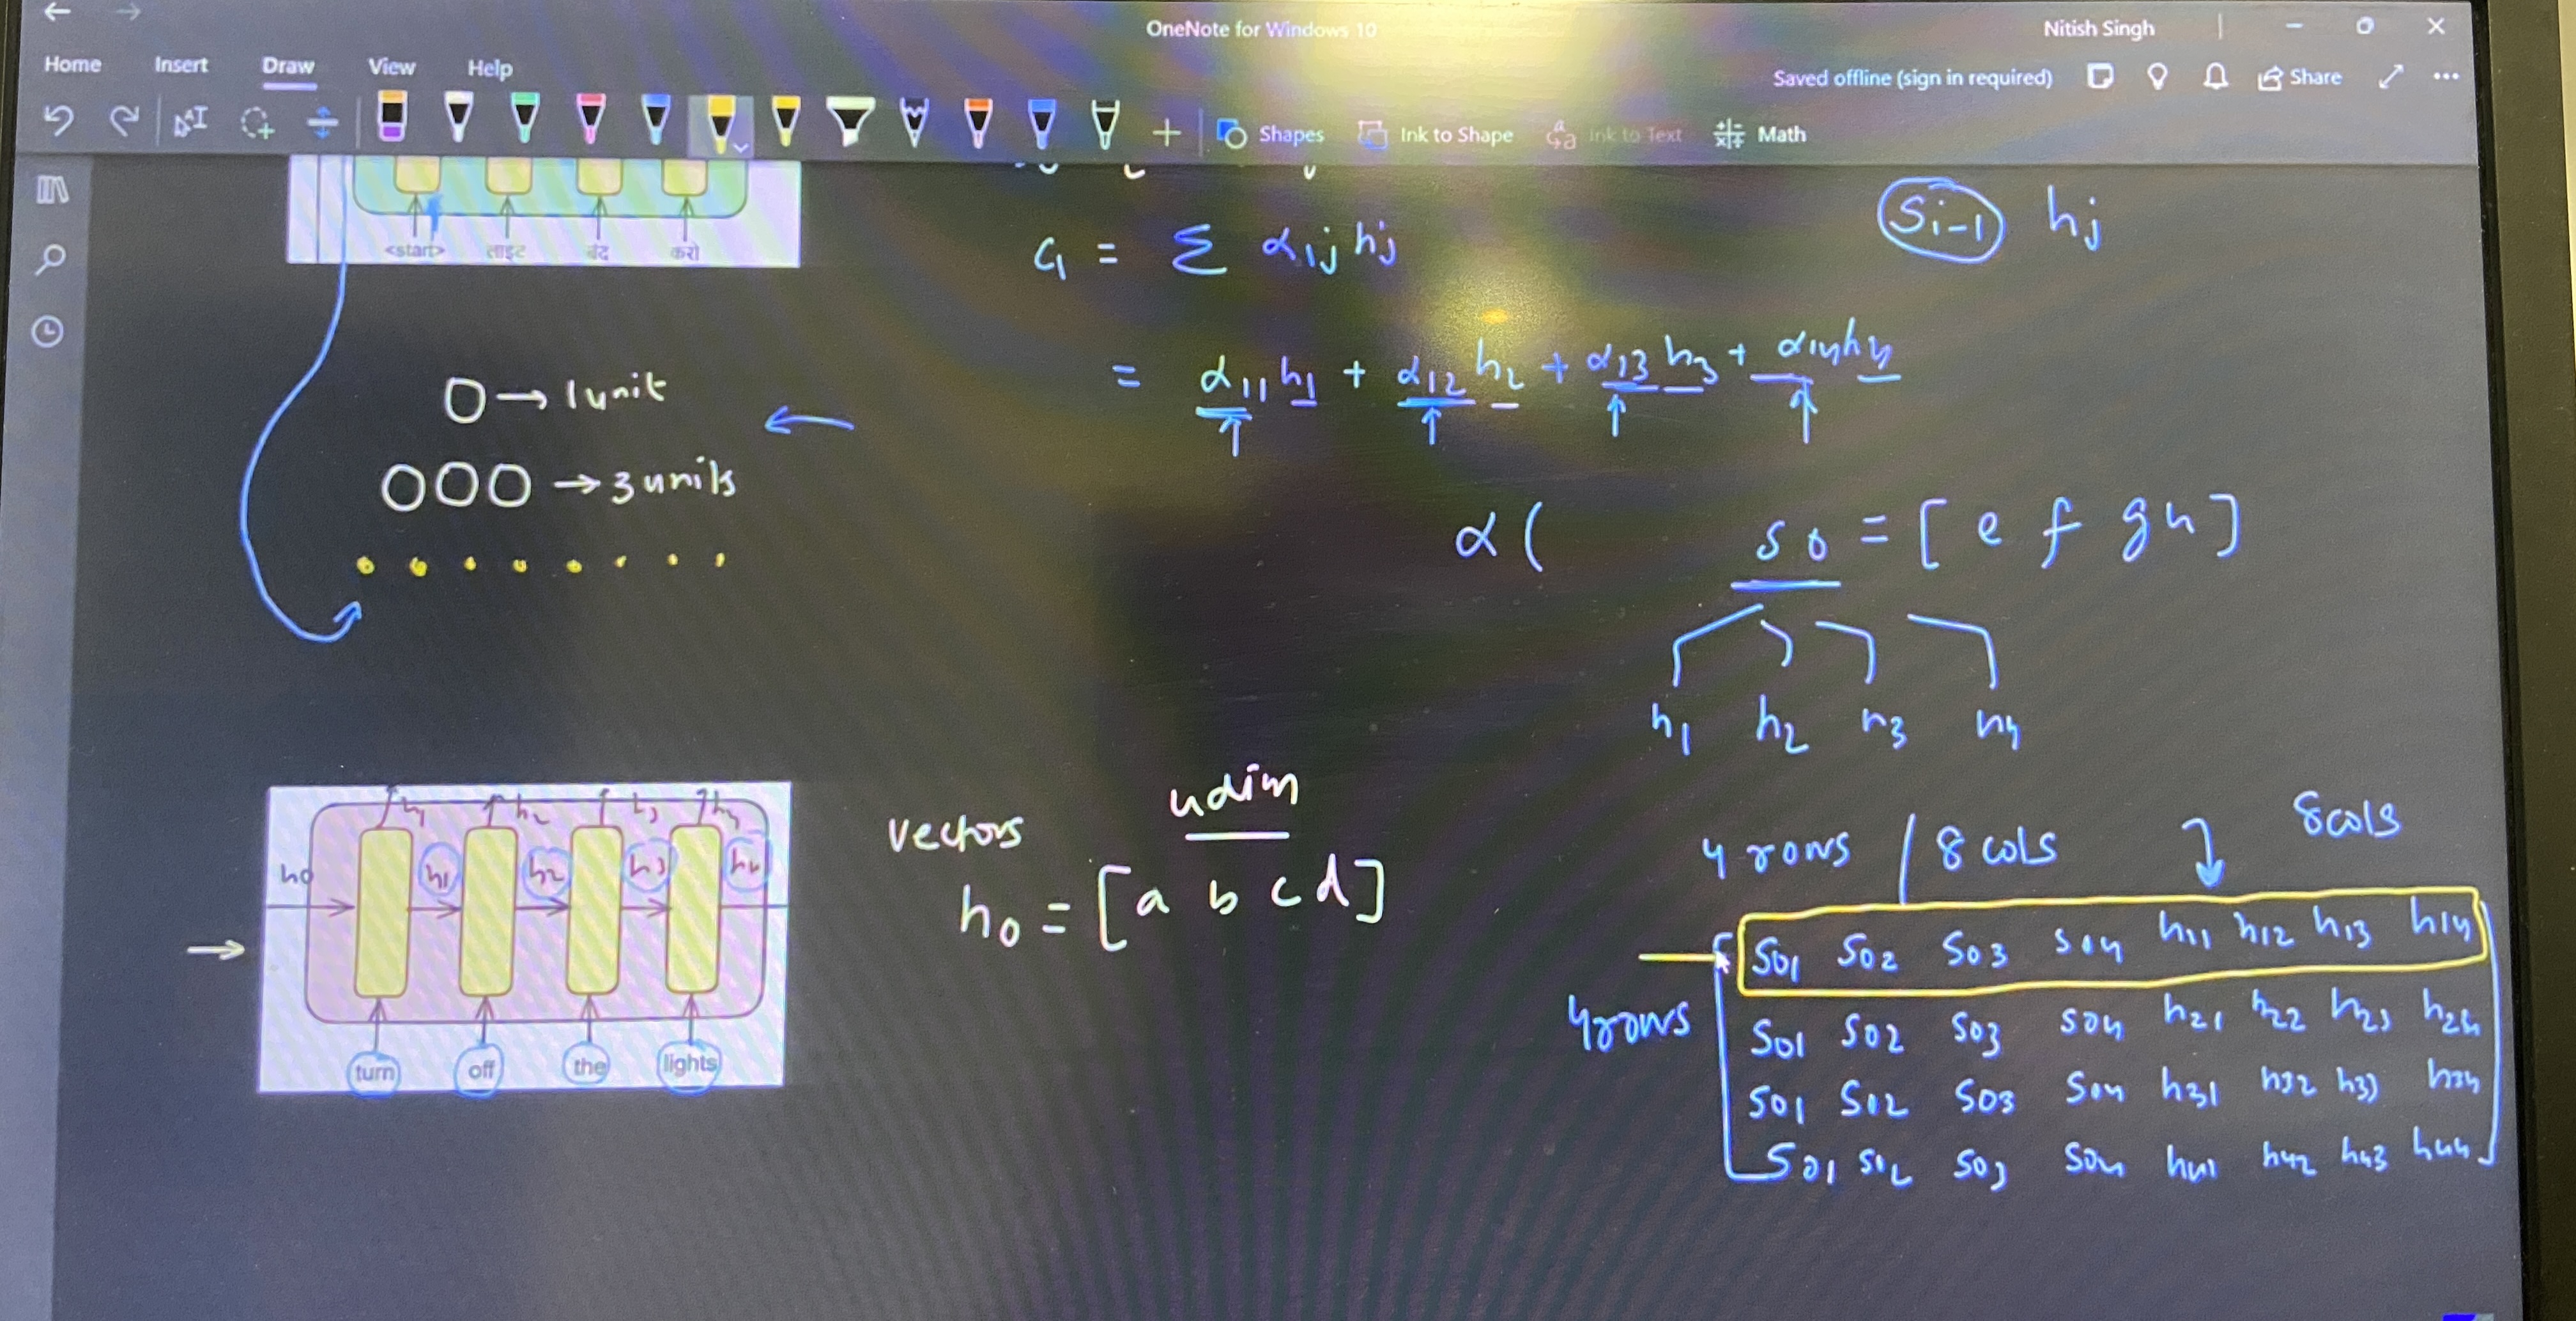 OneNote for Windows 10
Nitish Singh
Home Insert Draw View Help
Saved offline (sign in required)
Share
Shapes Ink to Shape Ink to Text Math
<start> लाइट बंद करो
c1 = Σ α1j hj
Si-1 hj
= α11 h1 + α12 h2 + α13 h3 + α14 h4
O → 1 unit
OOO → 3 units
α ( s0 = [ e f g h ]
h1 h2 h3 h4
h1 h2 h3 h4
h0 h1 h2 h3 h4
turn off the lights
vectors 4dim
h0 = [ a b c d ]
4 rows / 8 cols
8 cols
4 rows
S01 S02 S03 S04 h11 h12 h13 h14
S01 S02 S03 S04 h21 h22 h23 h24
S01 S02 S03 S04 h31 h32 h33 h34
S01 S02 S03 S04 h41 h42 h43 h44